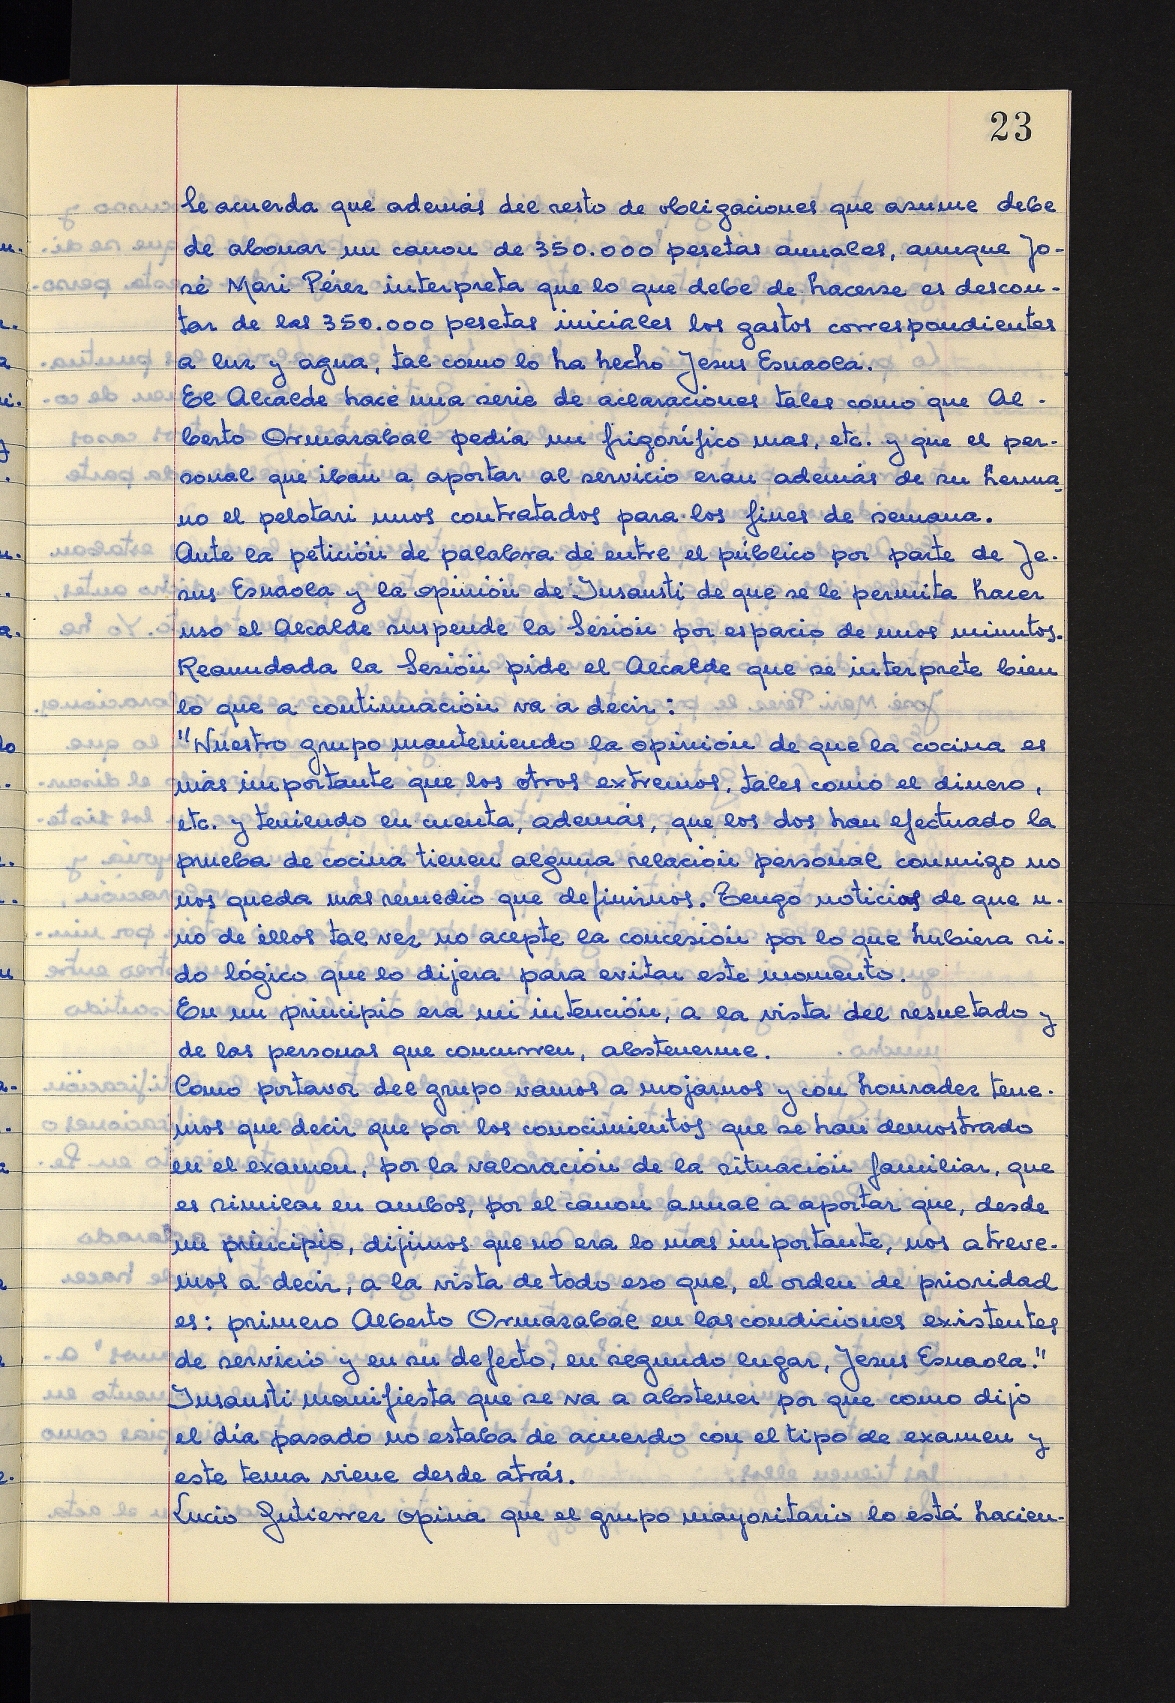 23
Se acuerda que además del resto de obligaciones que asume debe
de abonar un canon de 350.000 pesetas anuales, aunque Jo-
sé Mari Pérez interpreta que lo que debe de hacerse es descon-
tar de las 350.000 pesetas iniciales los gastos correspondientes
a luz y agua, tal como lo ha hecho Jesus Esnaola.
El Alcalde hace una serie de aclaraciones tales como que Al-
berto Ormazabal pedía un frigorífico mas, etc. y que el per-
sonal que iban a aportar al servicio eran además de su herma
no el pelotari unos contratados para los fines de semana.
Ante la petición de palabra de entre el público por parte de Je-
sus Esnaola y la opinión de Insausti de que se le permita hacer
uso el Alcalde suspende la Sesión por espacio de unos minutos.
Reanudada la Sesión pide el Alcalde que se interprete bien
lo que a continuación va a decir:
"Nuestro grupo manteniendo la opinión de que la cocina es
más importante que los otros extremos, tales como el dinero,
etc. y teniendo en cuenta, además, que los dos han efectuado la
prueba de cocina tienen alguna relación personal conmigo no
nos queda más remedio que definirnos. Tengo noticias de que u-
no de éllos tal vez no acepte la concesión por lo que hubiera si-
do lógico que lo dijera para evitar este momento.
En un principio era mi intención, a la vista del resultado y
de las personas que concurren, abstenerme.
Como portavoz del grupo vamos a mojarnos y con honradez tene-
mos que decir que por los conocimientos que se han demostrado
en el examen, por la valoración de la situación familiar, que
es similar en ambos, por el canon anual a aportar que, desde
un principio, dijimos que no era lo mas importante, nos atreve-
mos a decir, a la vista de todo eso que, el orden de prioridad
es: primero Alberto Ormazabal en las condiciones existentes
de servicio y en su defecto, en segundo lugar, Jesus Esnaola."
Insausti manifiesta que se va a abstener por que como dijo
el día pasado no estaba de acuerdo con el tipo de examen y
este tema viene desde atrás.
Lucio Gutierrez opina que el grupo mayoritario lo está hacien-